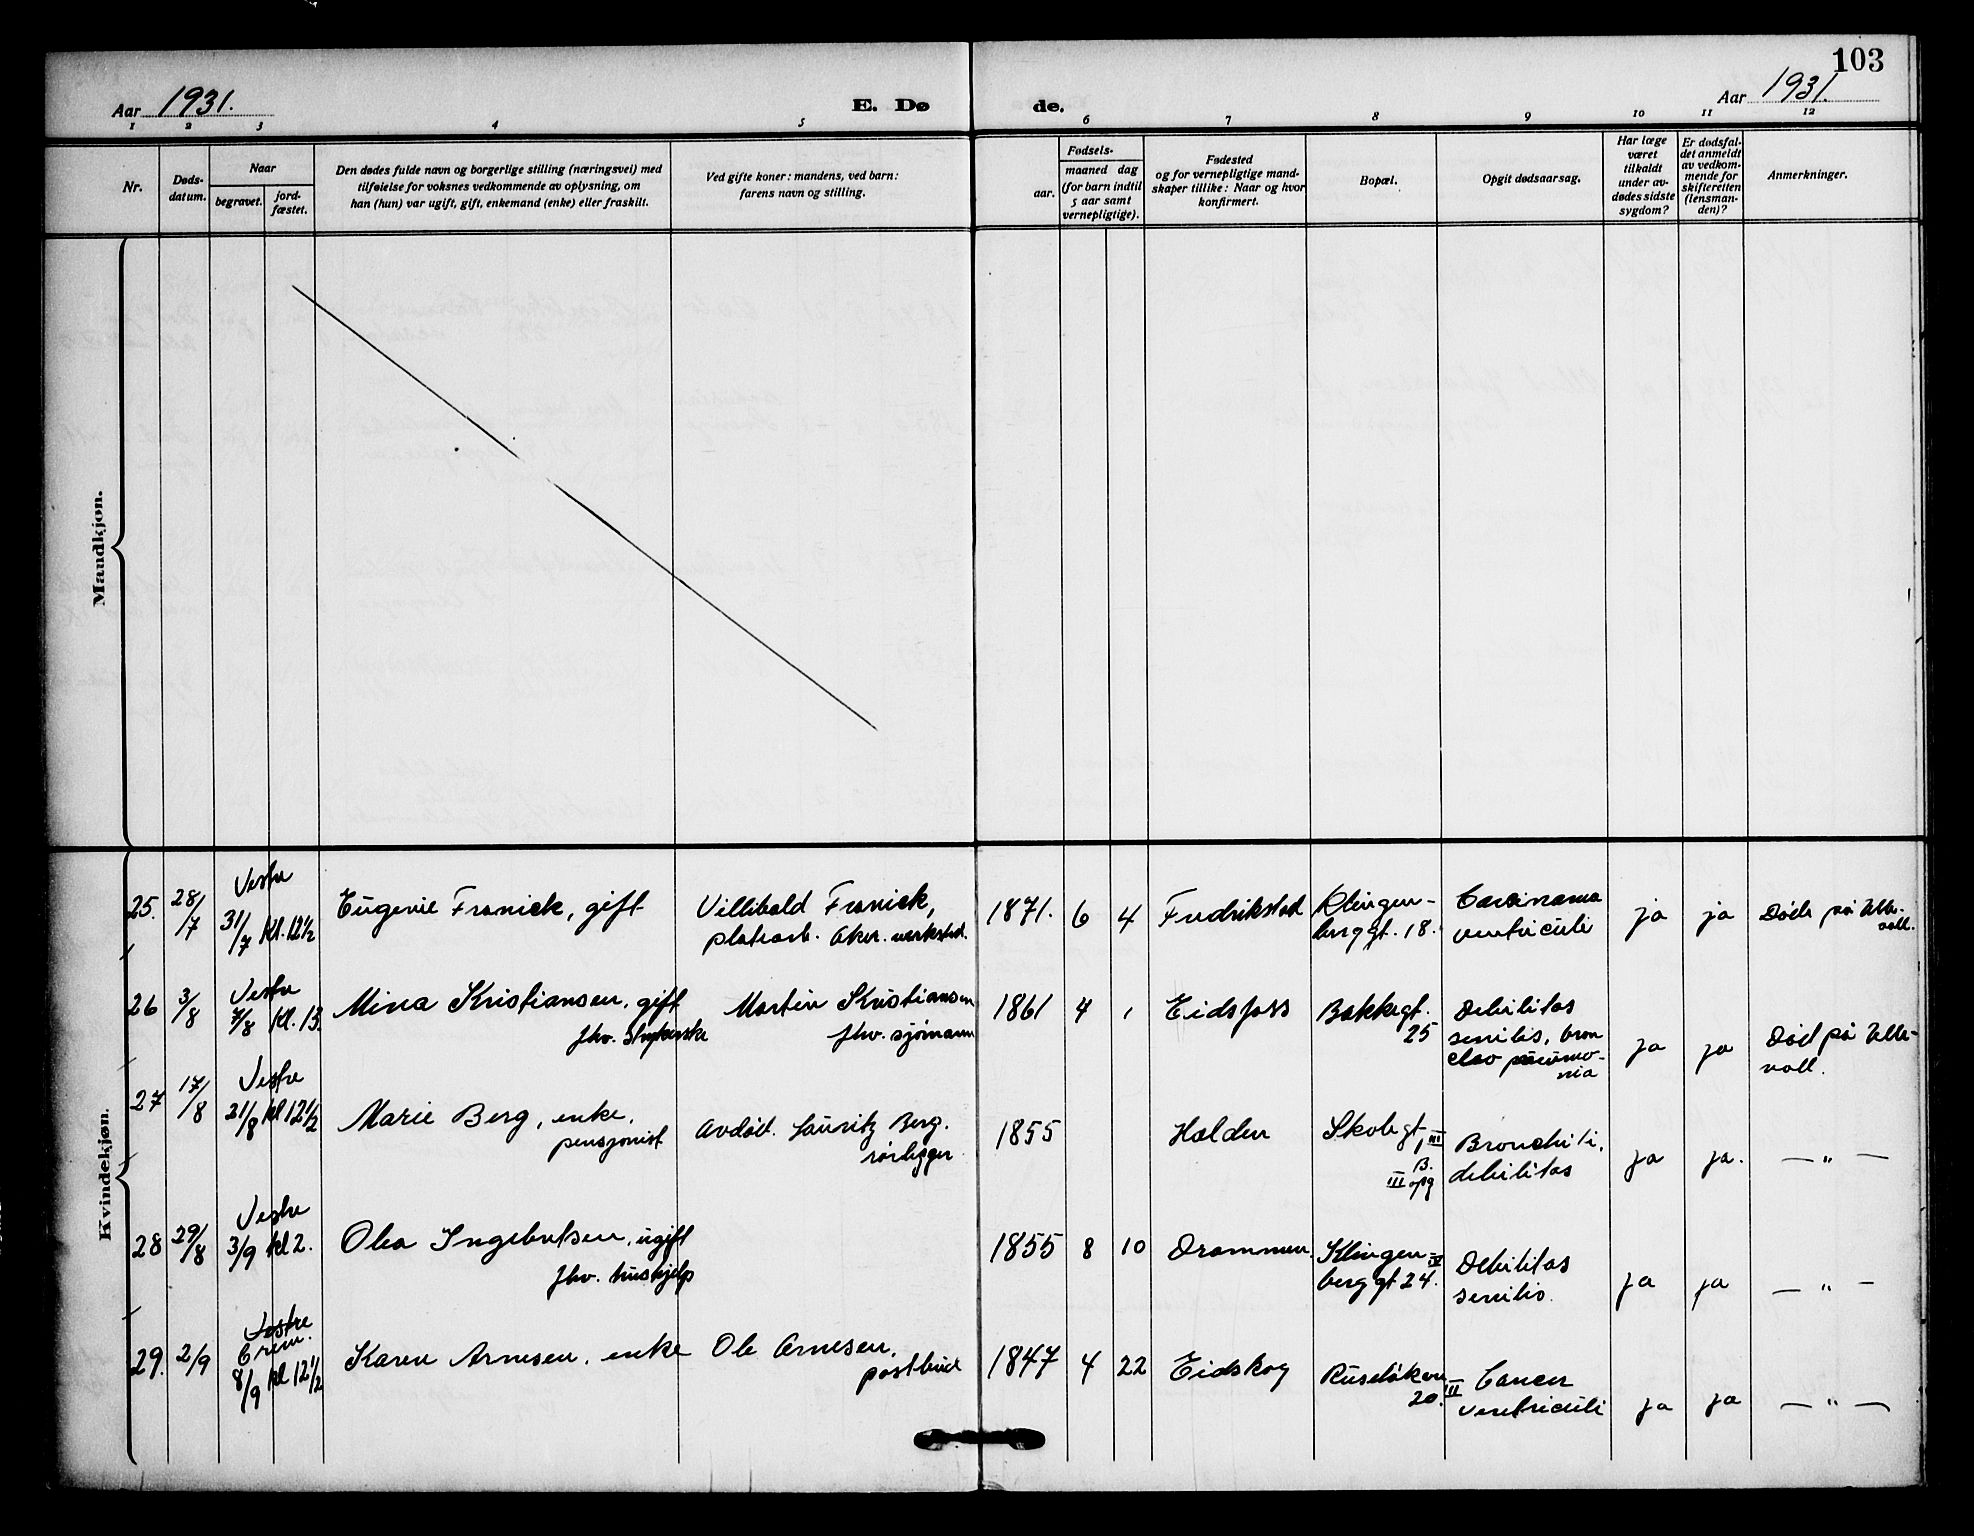 103
Aar 1931.
E. Dø
de.
Aar 1931.
1 2 3 4 5 6 7 8 9 10 11 12
Nr.
Døds-
datum.
Naar
begravet.
jord-
fæstet.
Den dødes fulde navn og borgerlige stilling (næringsvei) med
tilføielse for voksnes vedkommende av oplysning, om
han (hun) var ugift, gift, enkemand (enke) eller fraskilt.
Ved gifte koner: mandens, ved barn:
farens navn og stilling.
Fødsels-
aar.
maaned dag
(for barn indtil
5 aar samt
vernepligtige).
Fødested
og for vernepligtige mand-
skaper tillike: Naar og hvor
konfirmert.
Bopæl.
Opgit dødsaarsag.
Har læge
været
tilkaldt
under av-
dødes sidste
sygdom?
Er dødsfal-
det anmeldt
av vedkom-
mende for
skifteretten
(lensman-
den)?
Anmerkninger.
Mandkjøn.
Kvindekjøn.
25. 28/7
Vestre
31/7 Kl. 12½
Eugenie Franick, gift
Villibald Franick,
platearb. Aker. verksted.
1871. 6 4
Fredrikstad
Klingen-
berggt. 18.
Carcinoma
ventriculi
ja ja
Døde på Ulle-
vall.
26 3/8
Vestre
7/8 Kl. 13
Mina Kristiansen, gift
fhv. strykerske
Martin Kristiansen
fhv. sjømann
1861 4 1
Eidsfoss
Bakkegt.
25
Debilitas
senilis, bron
cho pneumo-
nia
ja ja
Død på Ulle-
vall.
27 17/8
Vestre
21/8 kl 12½
Marie Berg, enke,
pensjonist
Avdød. Lauritz Berg.
rørlegger
1855
Halden
Skolegt
1 III
B.
III opg
Bronchiti,
debilitas
ja ja. — " —
28 29/8
Vestre
3/9 kl 2.
Olea Ingebretsen, ugift
fhv. hushjelp
1855 8 10
Drammen.
Klingen- IV
berggt 24.
Debilitas
senilis.
ja ja — " —
29. 2/9
Vestre
Crem.
8/9 kl 12½
Karen Arnesen, enke
Ole Arnesen,
postbud
1847 4 22
Eidskog
Ruseløkvn
20. III
Cancer
ventriculi
ja ja — " —